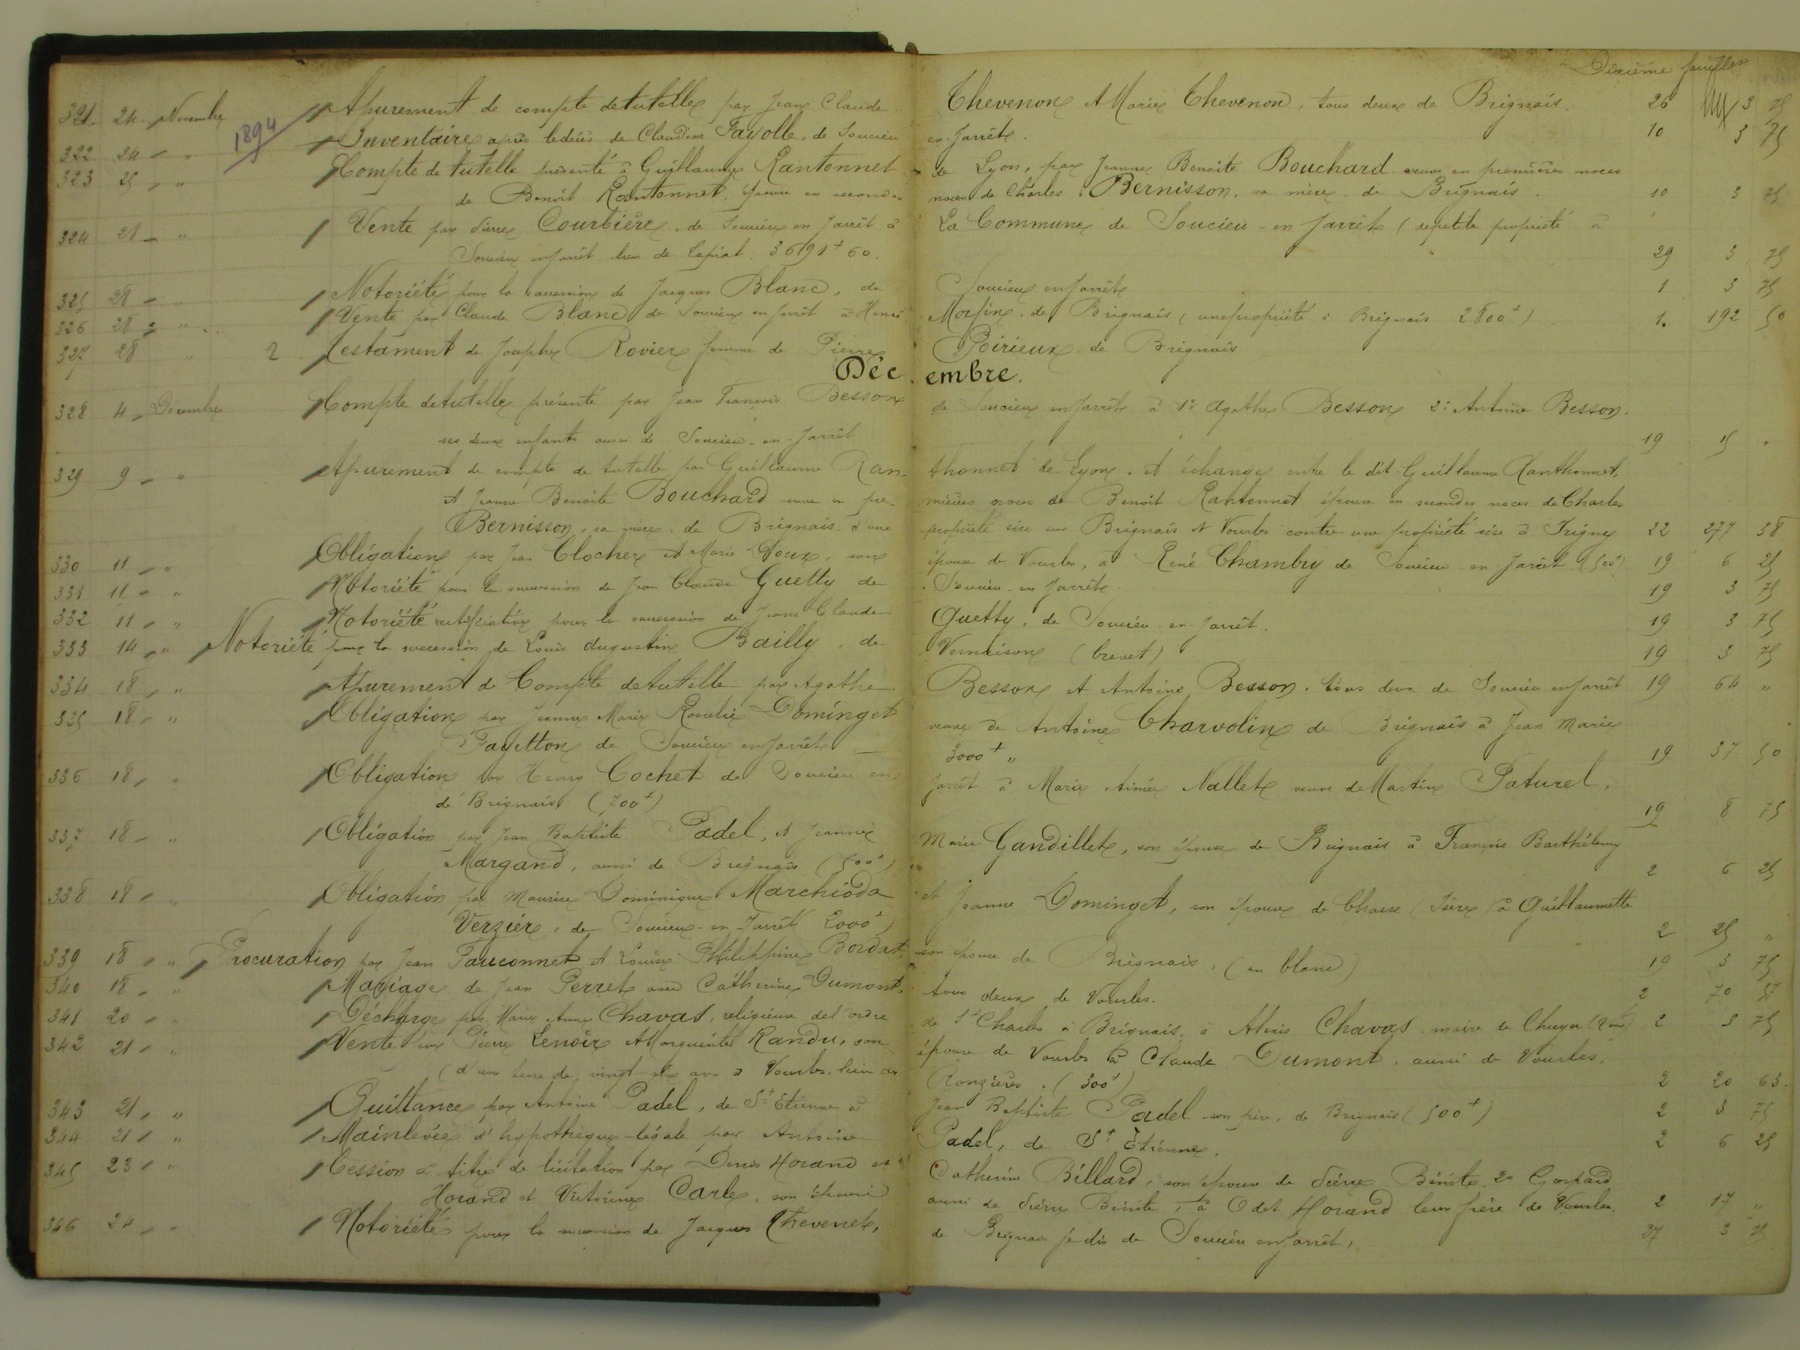 Dixième feuillet
321 24 Novembre Apurement de compte de tutelle par Jean Claude Thevenon et Marie Thevenon, tous deux de Brignais 26 3 75
1894
322 24 " Inventaire après le décès de Claudine Fayolle, de Soucieu en Jarrêt. 10 3 75
323 25 " Compte de tutelle présenté à Guillaume Rantonnet de Lyon, par Jeanne Benoite Bouchard veuve en premières noces
de Benoit Rantonnet, épouse en secondes noces de Charles Bernisson, sa mère, de Brignais. 10 3 75
324 28 " Vente par Pierre Courbière, de Soucieu en Jarrêt à La Commune de Soucieu-en-Jarrêt (petite propriété à
Soucieu en Jarrêt lieu de 36191f 60. 29 3 75
325 28 " Notoriété pour la succession de Jacques Blanc, de Soucieu en Jarrêt 1 3 75
326 28 " Vente par Claude Blanc de Soucieu en Jarrêt à Henri Morfin, de Brignais (une propriété à Brignais 2800f) 1. 192 50
327 28 " 2 Testament de Josephe Rovier femme de Pierre Poirieux de Brignais
Décembre.
328 4 Décembre Compte de tutelle présenté par Jean François Besson de Soucieu en Jarrêt à 1° Agathe Besson 2° Antoine Besson.
ses deux enfants aussi de Soucieu-en-Jarrêt 19 15 "
329 9 " Apurement de compte de tutelle par Guillaume Ranthonnet de Lyon, et échange entre le dit Guillaume Ranthonnet,
et Jeanne Benoite Bouchard veuve en premières noces de Benoit Rantonnet épouse en secondes noces de Charles
Bernisson, sa mère, de Brignais d'une propriété sise sur Brignais et Vourles contre une propriété sise à Irigny 22 277 38
330 11 " Obligation par Jean Clocher et Marie Doux, son épouse de Vourles, à René Chambry de Soucieu-en-Jarrêt (500f) 19 6 25
331 11 " Notoriété pour la succession de Jean Claude Guetty de Soucieu-en-Jarrêt. 19 3 75
332 11 " Notoriété rectificative pour la succession de Jean Claude Guetty, de Soucieu-en-Jarrêt. 19 3 75
333 14 " Notoriété pour la succession de Louis Augustin Bailly, de Vernaison (brevet) 19 3 75
334 18 " Apurement de Compte de tutelle par Agathe Besson et Antoine Besson, tous deux de Soucieu en Jarrêt 19 64 "
335 18 " Obligation par Jeanne Marie Rosalie Dominget veuve de Antoine Charvolin de Brignais à Jean Marie
de Soucieu en Jarrêt 3000f " 19 37 50
336 18 " Obligation par Henry Cochet de Soucieu en Jarrêt à Marie Aimée Nallet veuve de Martin Paturel,
de Brignais (700f) 19 8 75
337 18 " Obligation par Jean Baptiste Padel, et Jeanne Marie Gandillet, son épouse de Brignais à François Barthélemy
Margand, aussi de Brignais (500f) 2 6 25
338 18 " Obligation par Maurice Dominique Marchioda et Jeanne Dominget, son épouse de Chasse (Isère) à Guillaumette
Verzier, de Soucieu-en-Jarrêt 2000f) 2 25 "
339 18 " Procuration par Jean Fauconnet et Louise Philippine Bordat son épouse de Brignais, (en blanc) 19 3 75
340 18 " Mariage de Jean Perret avec Catherine Dumont, tous deux de Vourles. 2 70 57
341 20 " Décharge par Marie Anne Chavas, religieuse de l'ordre de St Charles à Brignais, à Alexis Chavas maire de Chuyer 2 3 75
342 21 " Vente par Pierre Lenoir et Marguerite Randu, son épouse de Vourles à Claude Dumont, aussi de Vourles,
(d'une terre de vingt six ares à Vourles, lieu des Ronzières. (300f) 2 20 63
343 21 " Quittance par Antoine Padel, de St Etienne à Jean Baptiste Padel son père, de Brignais (500f) 2 3 75
344 21 " Mainlevée d'hypothèque légale par Antoine Padel, de St Etienne. 2 6 25
345 23 " Cession à titre de licitation par Denis Horand et Catherine Billard, son épouse de Pierre Bénite, 2° Gaspard
Horand et Victorine Carle, son épouse aussi de Pierre Bénite, à Odet Horand leur frère de Vourles, 2 17 "
346 24 " Notoriété pour la succession de Jacques Thevenet, de Brignais jadis de Soucieu en Jarrêt, 27 3 75